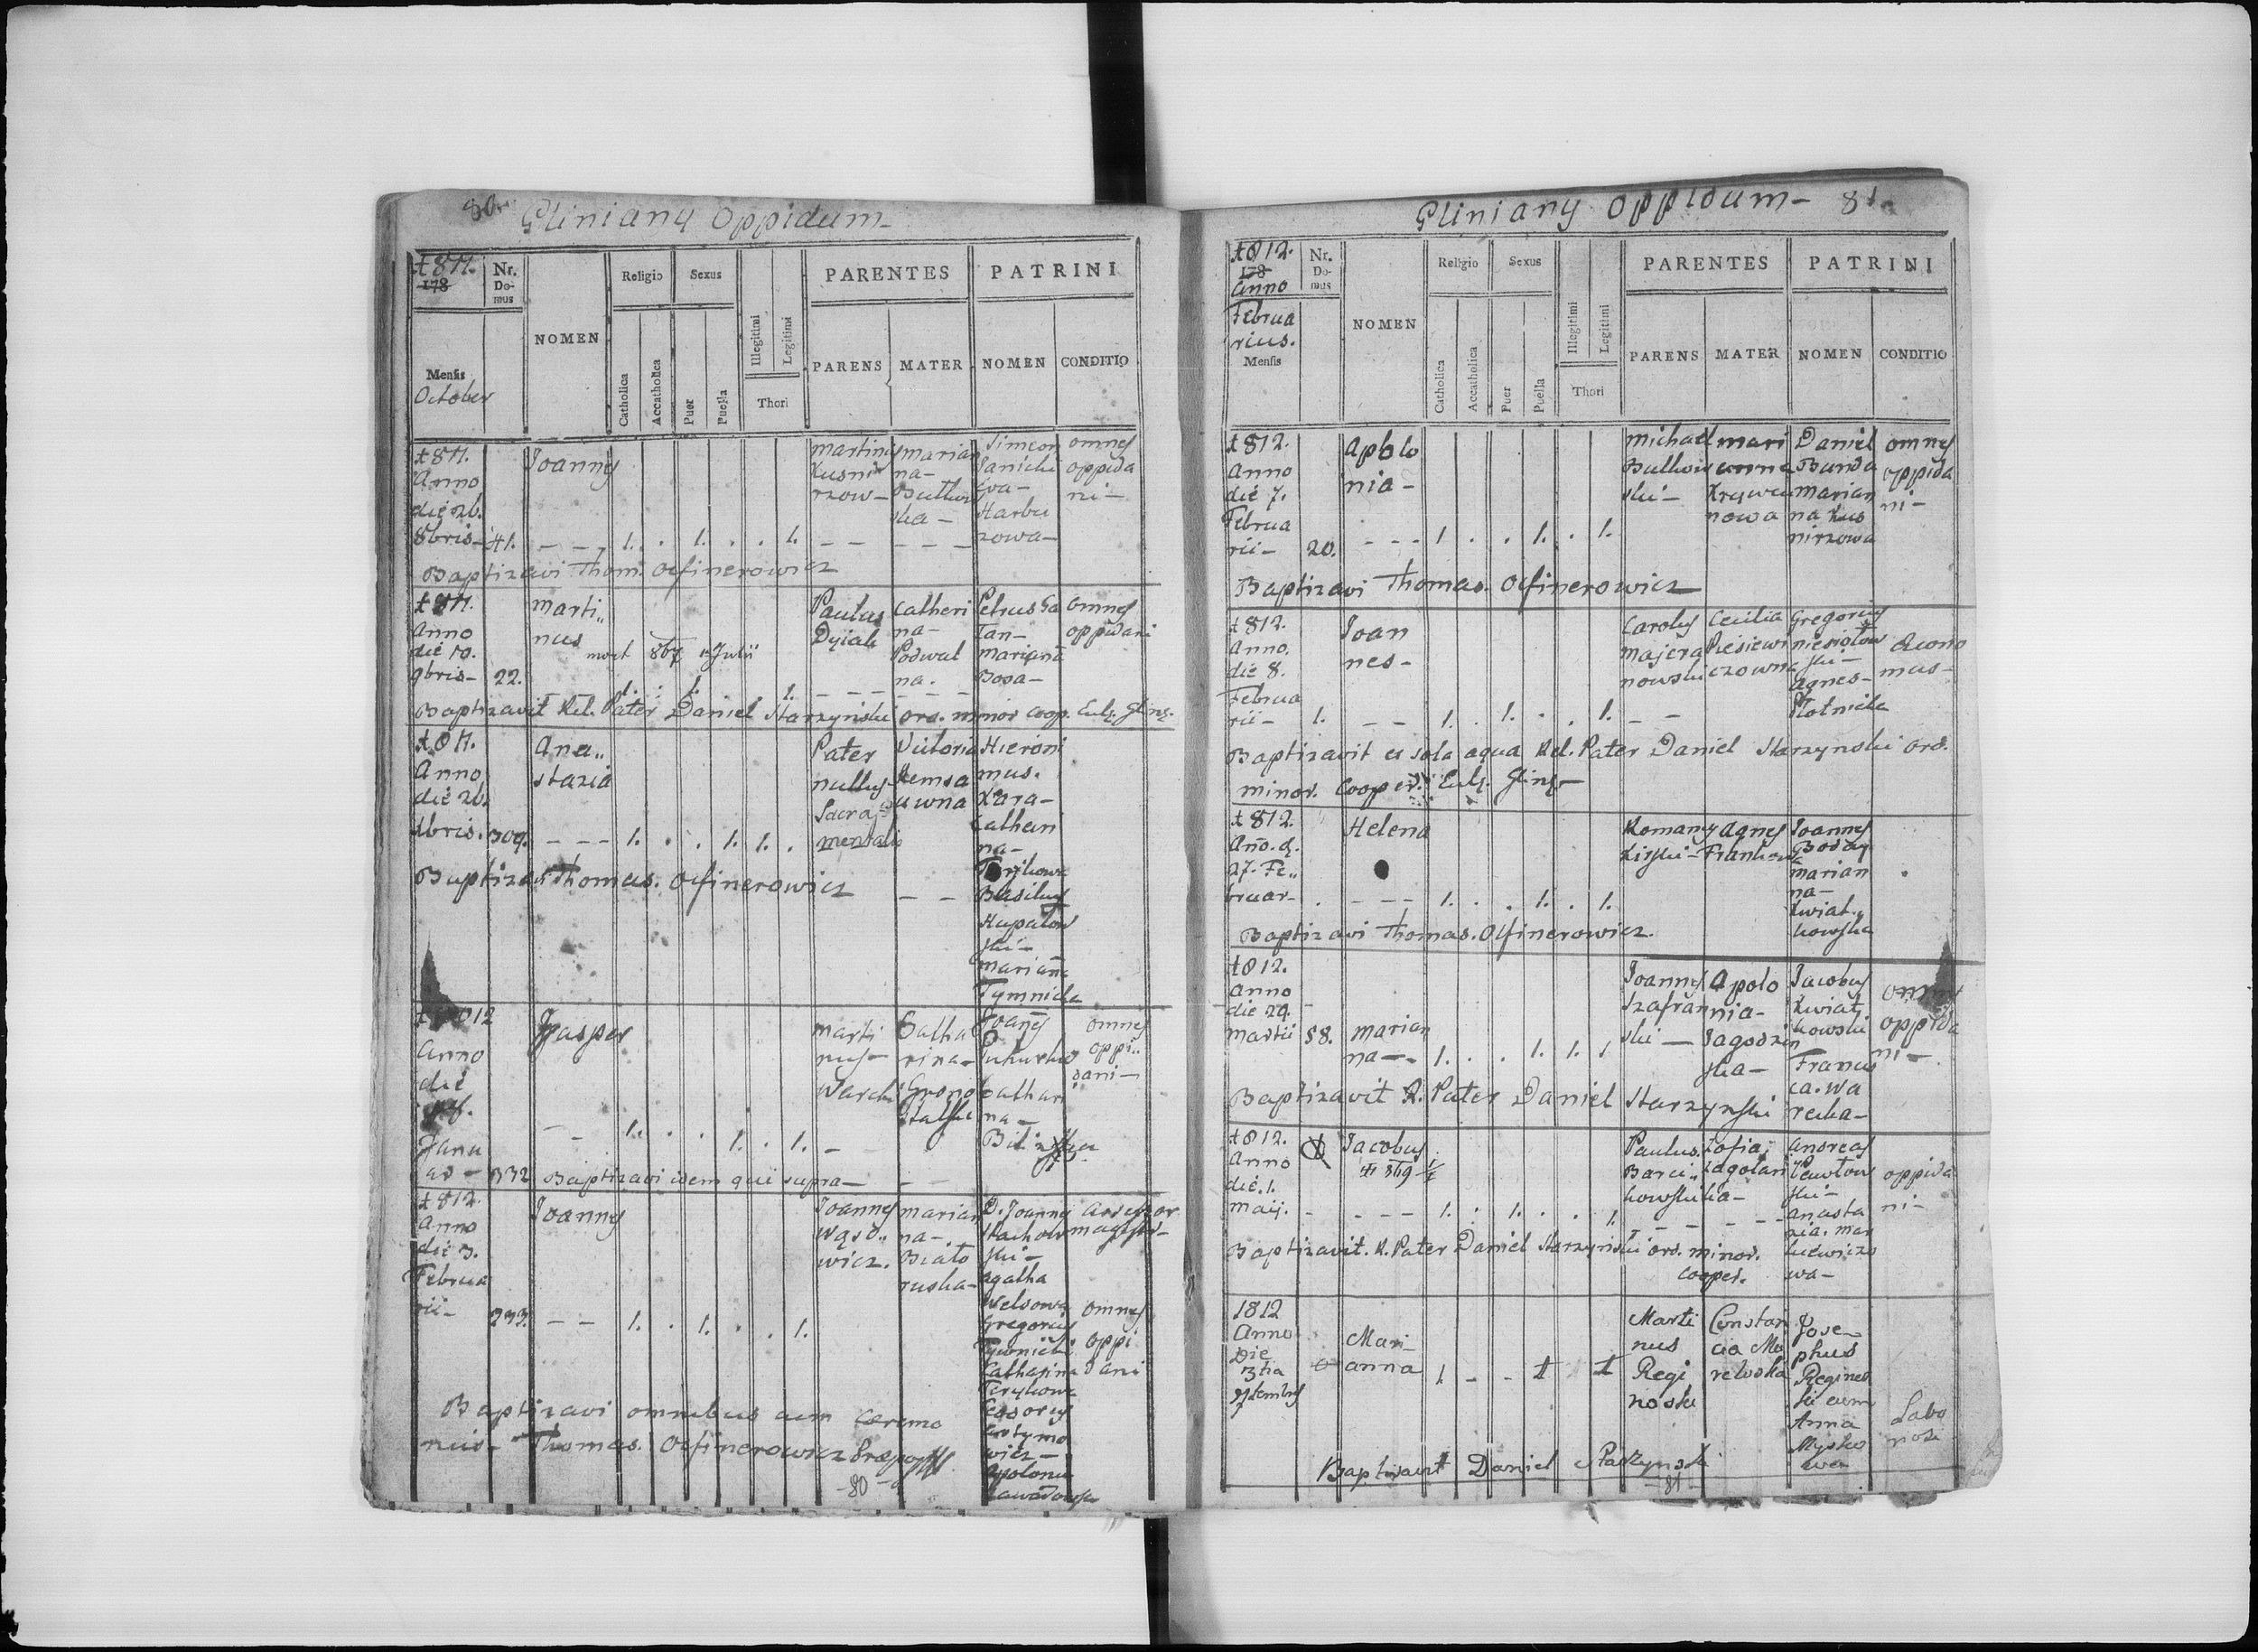 80.
Gliniany Oppidum
1811.
178
Nr. Domus
NOMEN
Religio
Sexus
Illegitimi
Legitimi
PARENTES
PATRINI
Mensis
October
Catholica
Accatholica
Puer
Puella
Thori
PARENS
MATER
NOMEN
CONDITIO
1811.
Anno
die 26.
8bris
41.
Joannes
1. . 1. . . 1.
Martinus
Kusni
rzow
Marian
na
Butkow
ska
Simeon
Janicki
Eva
Harbu
zowa
omnes
oppida
ni
Baptizavi Thom. Olfinerowicz
1811.
Anno
die 10.
9bris
22.
Marti
nus
mort 867 Julii
1. . 1. 1.
Paulus
Dyiak
Catheri
na
Podwal
na
Petrus Ga
Tan
Marianna
Bosa
omnes
oppidani
Baptizavit Rel. Pater Daniel Starzynski Ord. minor Coop. Eccl. Glin.
1811.
Anno
die 26
Xbris.
309.
Ana
stazia
1. . . 1. 1. .
Pater
nullus
Sacra
mentalis
Victoria
Hieroni
mus.
Kara
Cathari
na
Basilius
Hupalow
ski
Marianna
Tymnicka
Baptizavi Thomas. Olfinerowicz
1812
Anno
die
Janu
332
Gasper
1. . . 1. . 1.
Marti
nus
Catha
rina
Joannes
Cathari
na
omnes
oppi
dani
Baptizavi idem qui supra
1812.
Anno
die 3.
Februa
rii
233.
Joannes
1. . 1. . . 1.
Joannes
Wąso
wicz.
Marian
na
Biało
ruska
D. Joannes
Stachow
ski
Agatha
Welsowa
Gregorius
Tymnicki
Catharina
Terykowa
Apolonia
Zawadowska
Assessor
omnes
oppi
dani
Baptizavi omnibus cum Ceremo
niis Thomas. Olfinerowicz
80
Gliniany Oppidum 81.
1812.
178
Anno
Februa
rius.
Mensis
Nr. Domus
NOMEN
Religio
Sexus
Illegitimi
Legitimi
PARENTES
PATRINI
Catholica
Accatholica
Puer
Puella
Thori
PARENS
MATER
NOMEN
CONDITIO
1812.
Anno
die 7.
Februa
rii
20.
Apolo
nia
1 . . 1. . 1.
Michael
Butkow
ski
Mari
anna
Krywcu
nowa
Daniel
Bunda
Marian
na Kus
nirzowa
omnes
oppida
ni
Baptizavi Thomas. Olfinerowicz
1812.
Anno.
die 8.
Februa
rii
1.
Joan
nes
1. . 1. . . 1.
Carolus
Majera
nowski
Cecilia
Resiewi
czowna
Gregorius
Niesiołow
ski
Agnes
Złotnicka
Œcono
mus
Baptizavit ex sola aqua Rel. Pater Daniel Starzynski Ord.
minor. Cooper. Eccl. Glin.
1812.
Ano. d.
27. Fe
bruar
Helena
1. . . 1. . 1.
Romanus
Kirski
Agnes
Joannes
Marian
na
Kwiat
kowska
Baptizavi Thomas. Olfinerowicz.
1812.
Anno
die 29.
Martii
58.
Marian
na
1. . . 1. 1. 1
Joannes
Szafran
ski
Apolo
nia
Jagodzin
ska
Jacobus
Kwiat
kowski
Francis
ca. Wa
recka
omnes
oppida
ni
Baptizavit R. Pater Daniel Starzynski
1812.
Anno
die. 1.
Maij.
Jacobus
1. . 1. . . 1.
Paulus.
Barci
kowski
Zofia
Zagolan
ka
Andreas
Pawłow
ski
Anasta
zia. Mar
kiewiczo
wa
oppida
ni
Baptizavit. R. Pater Daniel Starzynski Ord. minor.
Cooper.
1812
Anno
Die
3tia
7tembris
Mari
anna
1 - - 1 1
Marti
nus
Regi
noski
Constan
cia
Jose
phus
Regines
ki cum
Anna
Mysko
wa
Labo
riosi
Baptisavit Daniel Starzynski
81